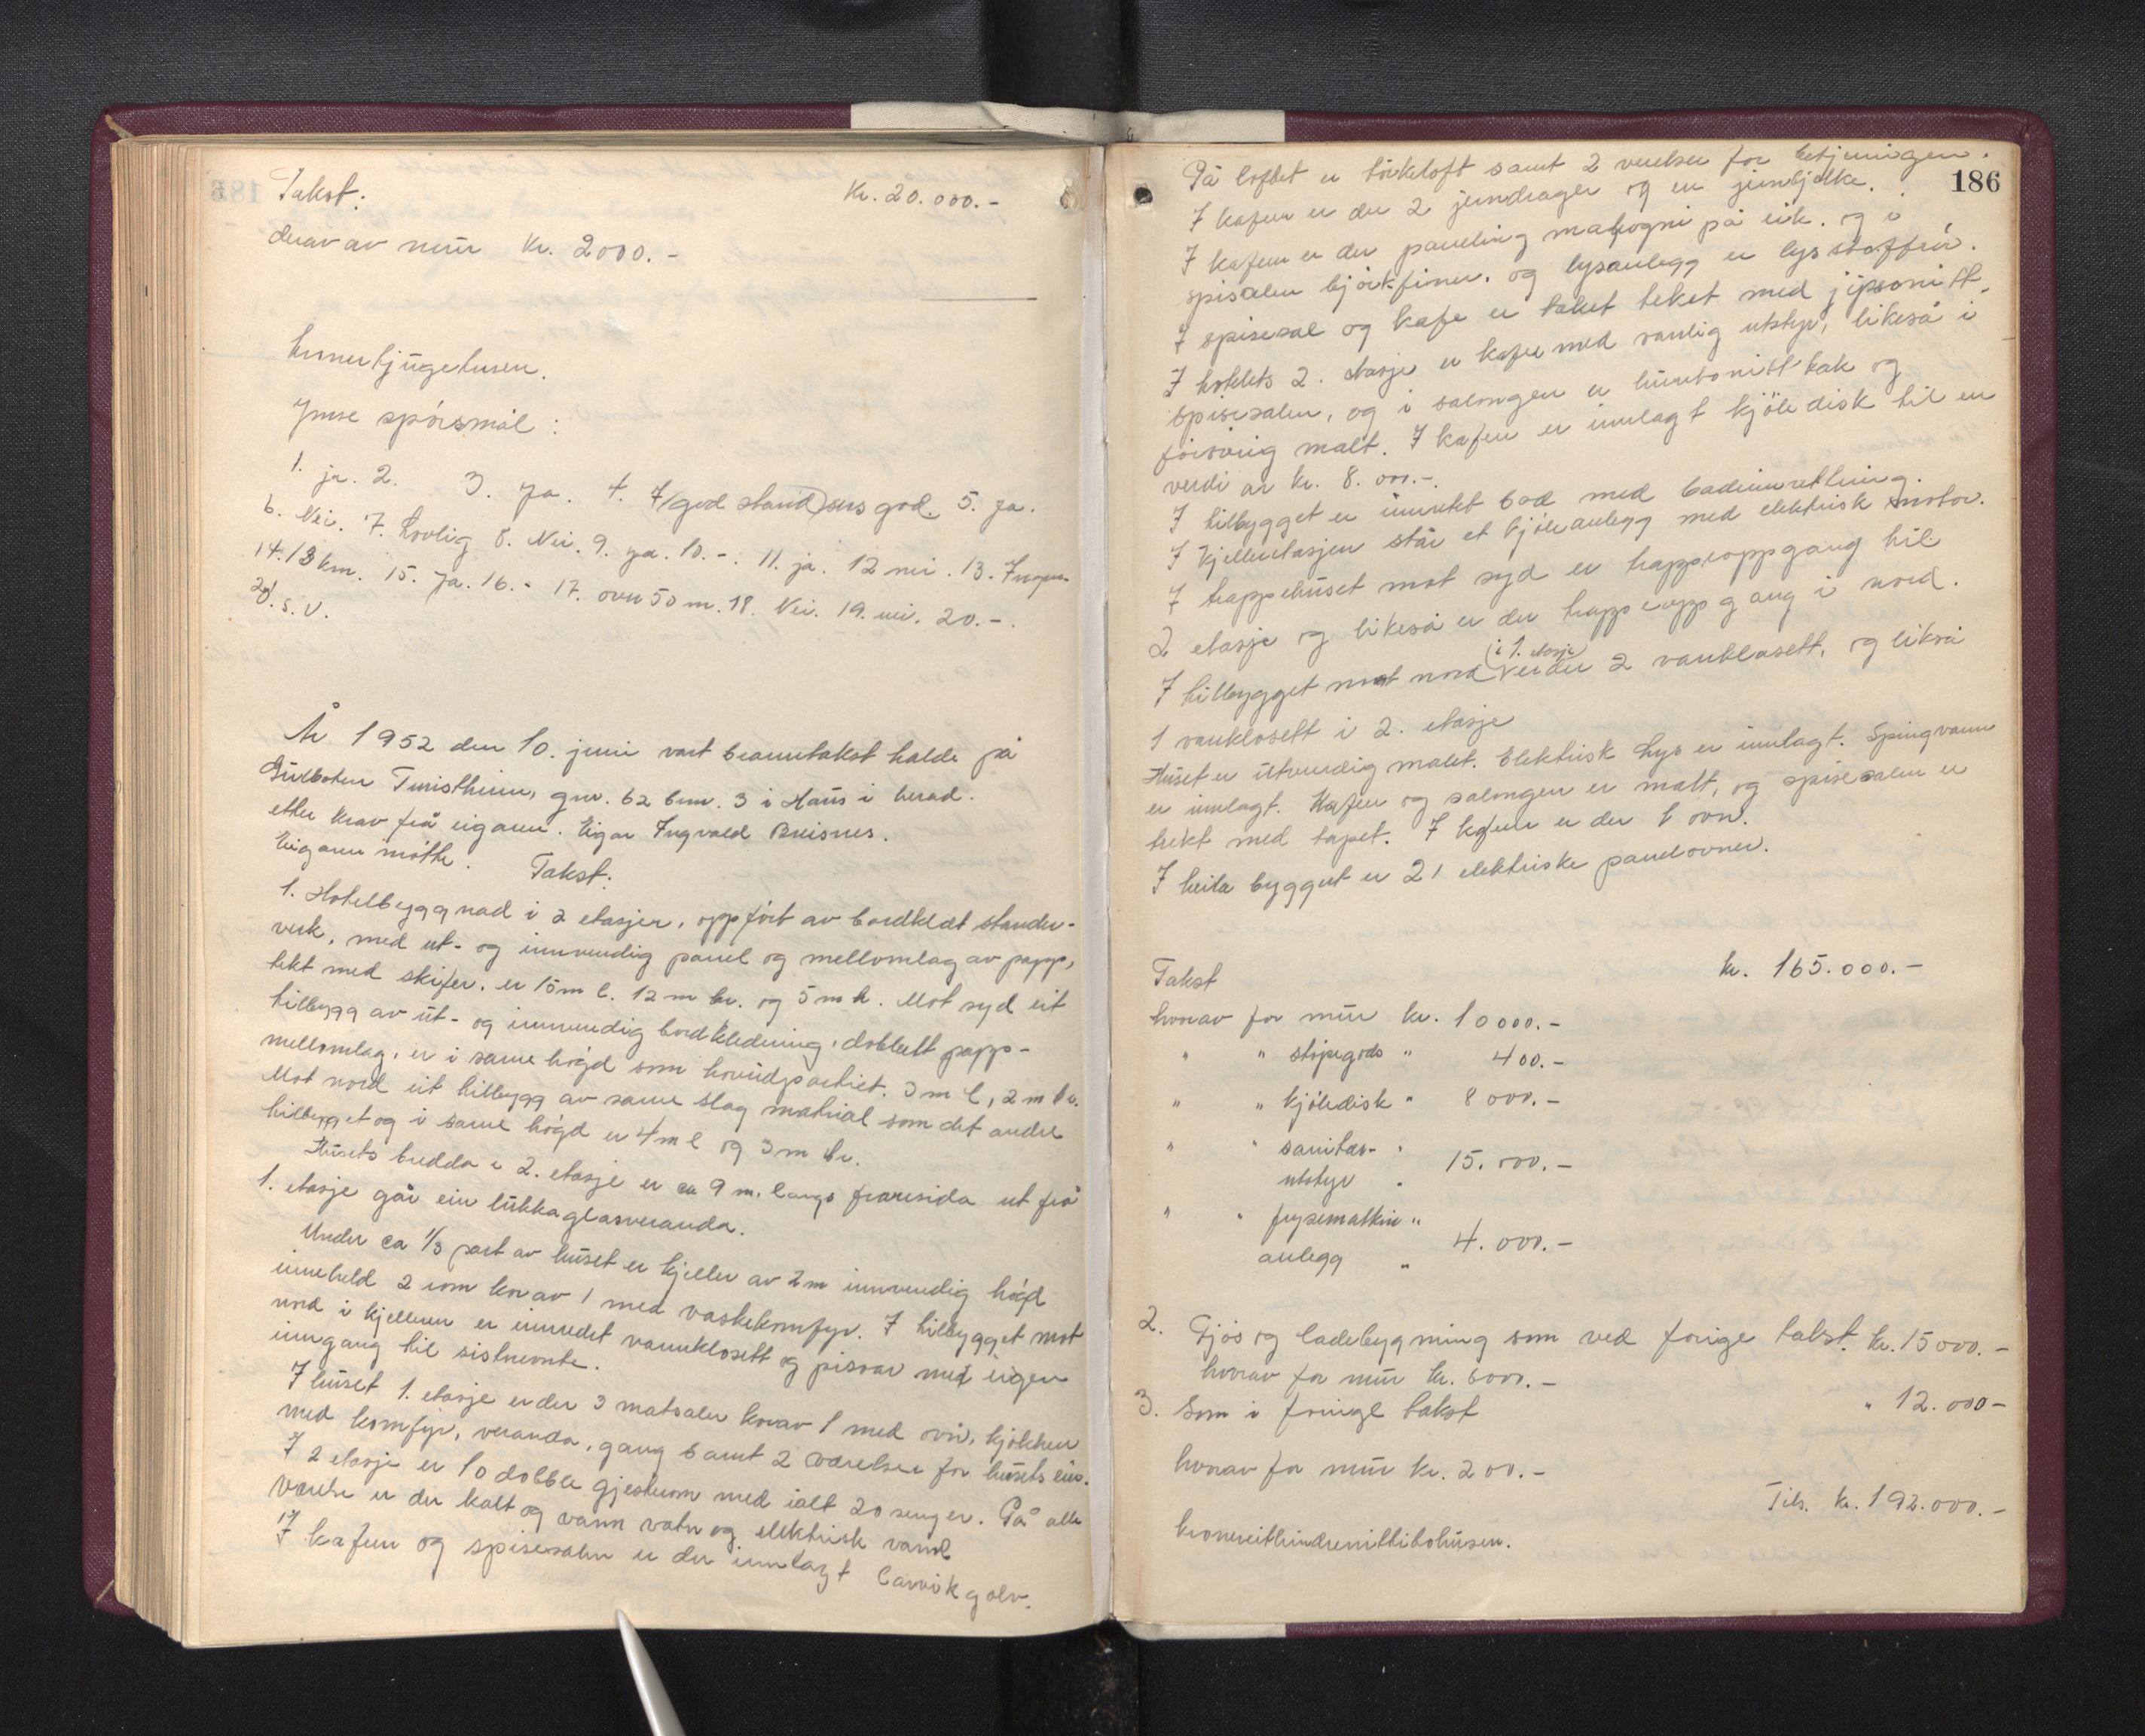 Takst: Kr. 20.000.-
derav av mur Kr. 2000.-
kronertjugetusen.
Ymse spörsmål:
1. ja. 2. 3. Ja. 4. I god stand 5. Ja.
6. Nei. 7. Lovlig 8. Nei. 9. ja. 10. -. 11. ja. 12 nei. 13. Ingen
14. 13 km. 15. Ja. 16. - 17. over 50 m. 18. Nei. 19. nei. 20. -.
21. S. V.
År 1952 den 10. juni vart branntakst halde på
Gullboten Turistheim, gnr. 62 bnr. 3 i Haus i herad.
etter krav frå eigaren. Eigar Ingvald Breisnes.
Eigaren møtte. Takst:
1. Hotelbyggnad i 2 etasjer, oppfört av bordkledt stender-
verk, med ut- og innvendig panel og mellomlag av papp,
tekt med skifer, er 15 m l. 12 m br. og 5 m h. Mot syd eit
tilbygg av ut- og innvendig bordkledning, dobbelt papp-
mellomlag, er i same högd som hovudpartiet. 3 m l, 2 m br.
Mot nord eit tilbygg av same slag matrial som det andre
tilbygget og i same högd er 4 m l og 3 m br.
Husets bredda i 2. etasje er ca 9 m. langs framsida ut frå
1. etasje går ein lukka glasveranda.
Under ca 1/3 part av huset er kjeller av 2 m innvendig högd
inneheld 2 rom korav 1 med vaskekomfyr. I tilbygget mot
nord i kjelleren er innredet vannklosett og pissoar med eigen
inngang til sistnevnte.
I huset 1. etasje er der 3 matsaler korav 1 med ovn, kjökken
med komfyr, veranda, gang samt 2 værelser for husets eier.
I 2 etasje er 10 doble gjesterom med ialt 20 senger. På alle
værelse er der kalt og varm vatn og elektrisk varme
I kafeen og spisesalen er der innlagt Carvikgolv.
186
På loftet er törkeloft samt 2 verelser for betjeningen.
I kafeen er der 2 jerndrager og en jernbjelke.
I kafeen er der paneling mahogni på eik. og i
spisalen björkfiner. og lysanlegg er lysstoffrör.
I spisesal og kafe er taket teket med jipsonitt.
I hotelets 2. etasje er kafee med vanlig utstyr, likeså i
spisesalen, og i salongen er huntonitt tak og
forövrig malt. I kafeen er innlagt kjöledisk til en
verdi av kr. 8.000.-.
I tilbygget er innredet bad med badeinnretning.
I kjelleretasjen står et kjöleanlegg med elektrisk motor.
I trappehuset mot syd er trappeoppgang til
2 etasje og likeså er der trappeoppgang i nord.
I tilbygget mot nord (i 1. etasje) er der 2 vannklosett, og likså
1 vannklosett i 2. etasje
Huset er utvendig malet. Elektrisk lys er innlagt. Springvann
er innlagt. Kafeen og salongen er malt, og spisesalen er
trekt med tapet. I kafeen er der 1 ovn.
I heila bygget er 21 elektriske panelovner.
Takst kr. 165.000.-
hvorav for mur kr. 10000.-
" " stöpegods " 400.-
" " kjöledisk " 8000.-
" " sanitær- "
utstyr " 15.000.-
" " frysemaskin "
anlegg " 4.000.-
2. Fjös og ladebygning som ved forige takst. kr. 15000.-
hvorav for mur kr. 6000.-
3. Som i forrige takst " 12.000-
hvorav for mur kr. 200.-
Tils. kr. 192.000.-
kroneretthundrenittitotusen.